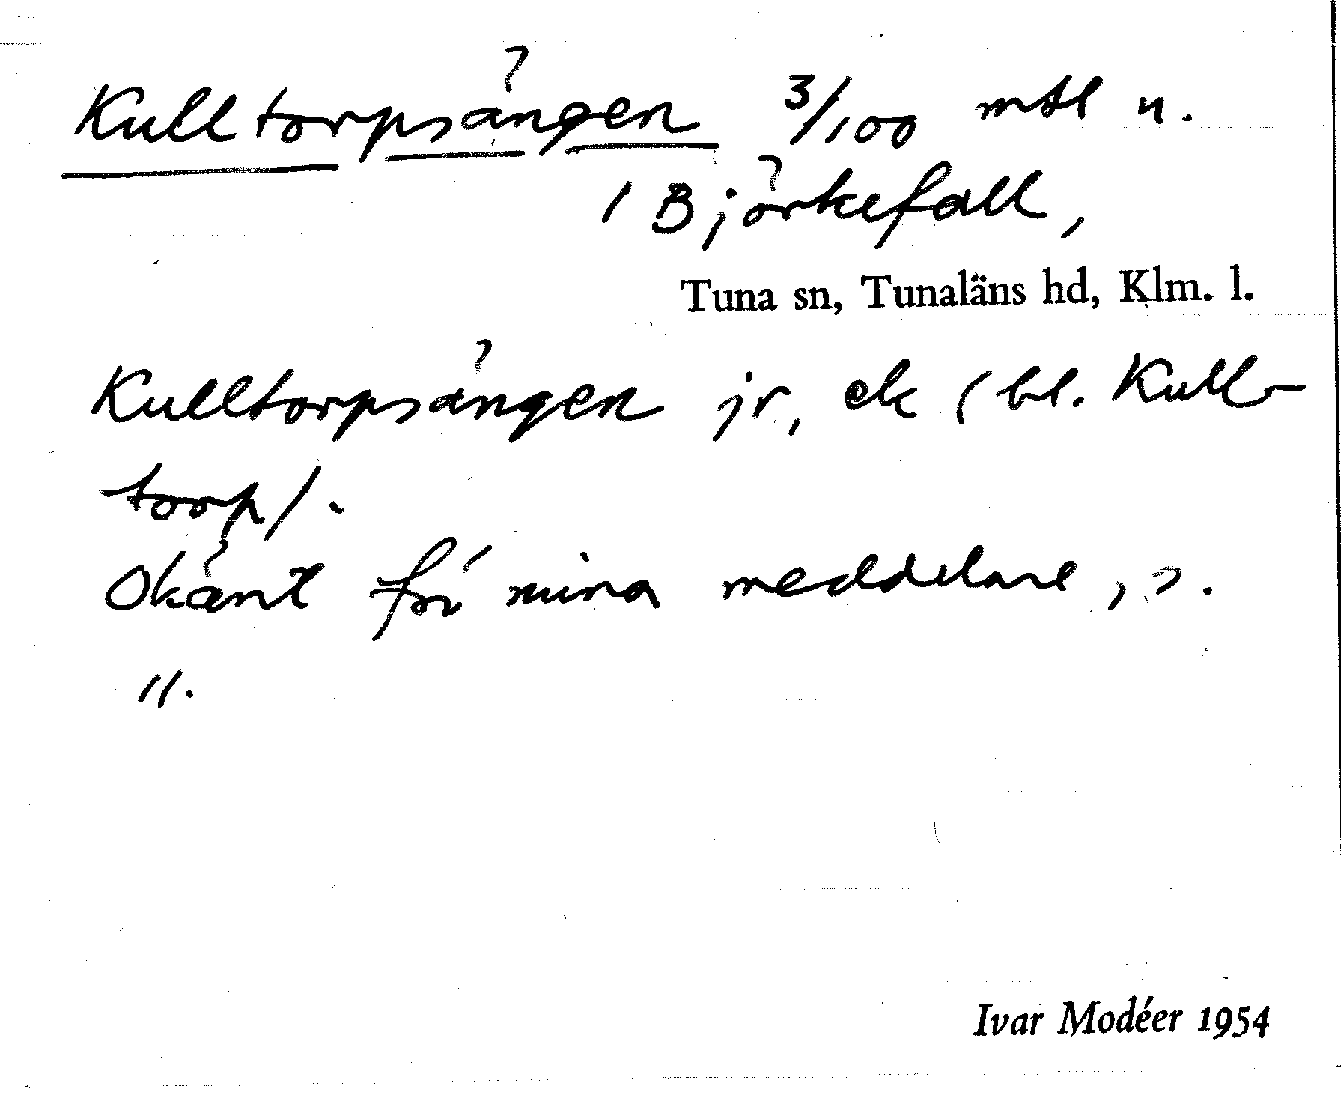 Kulltorpsängen 3/100 mtl u.
/ Björkefall,
Tuna sn, Tunaläns hd, Klm. l.
Kulltorpsängen jr, ek (bl. Kull-
torp/.
Okänt för mina meddelare,
//.
Ivar Modéer 1954